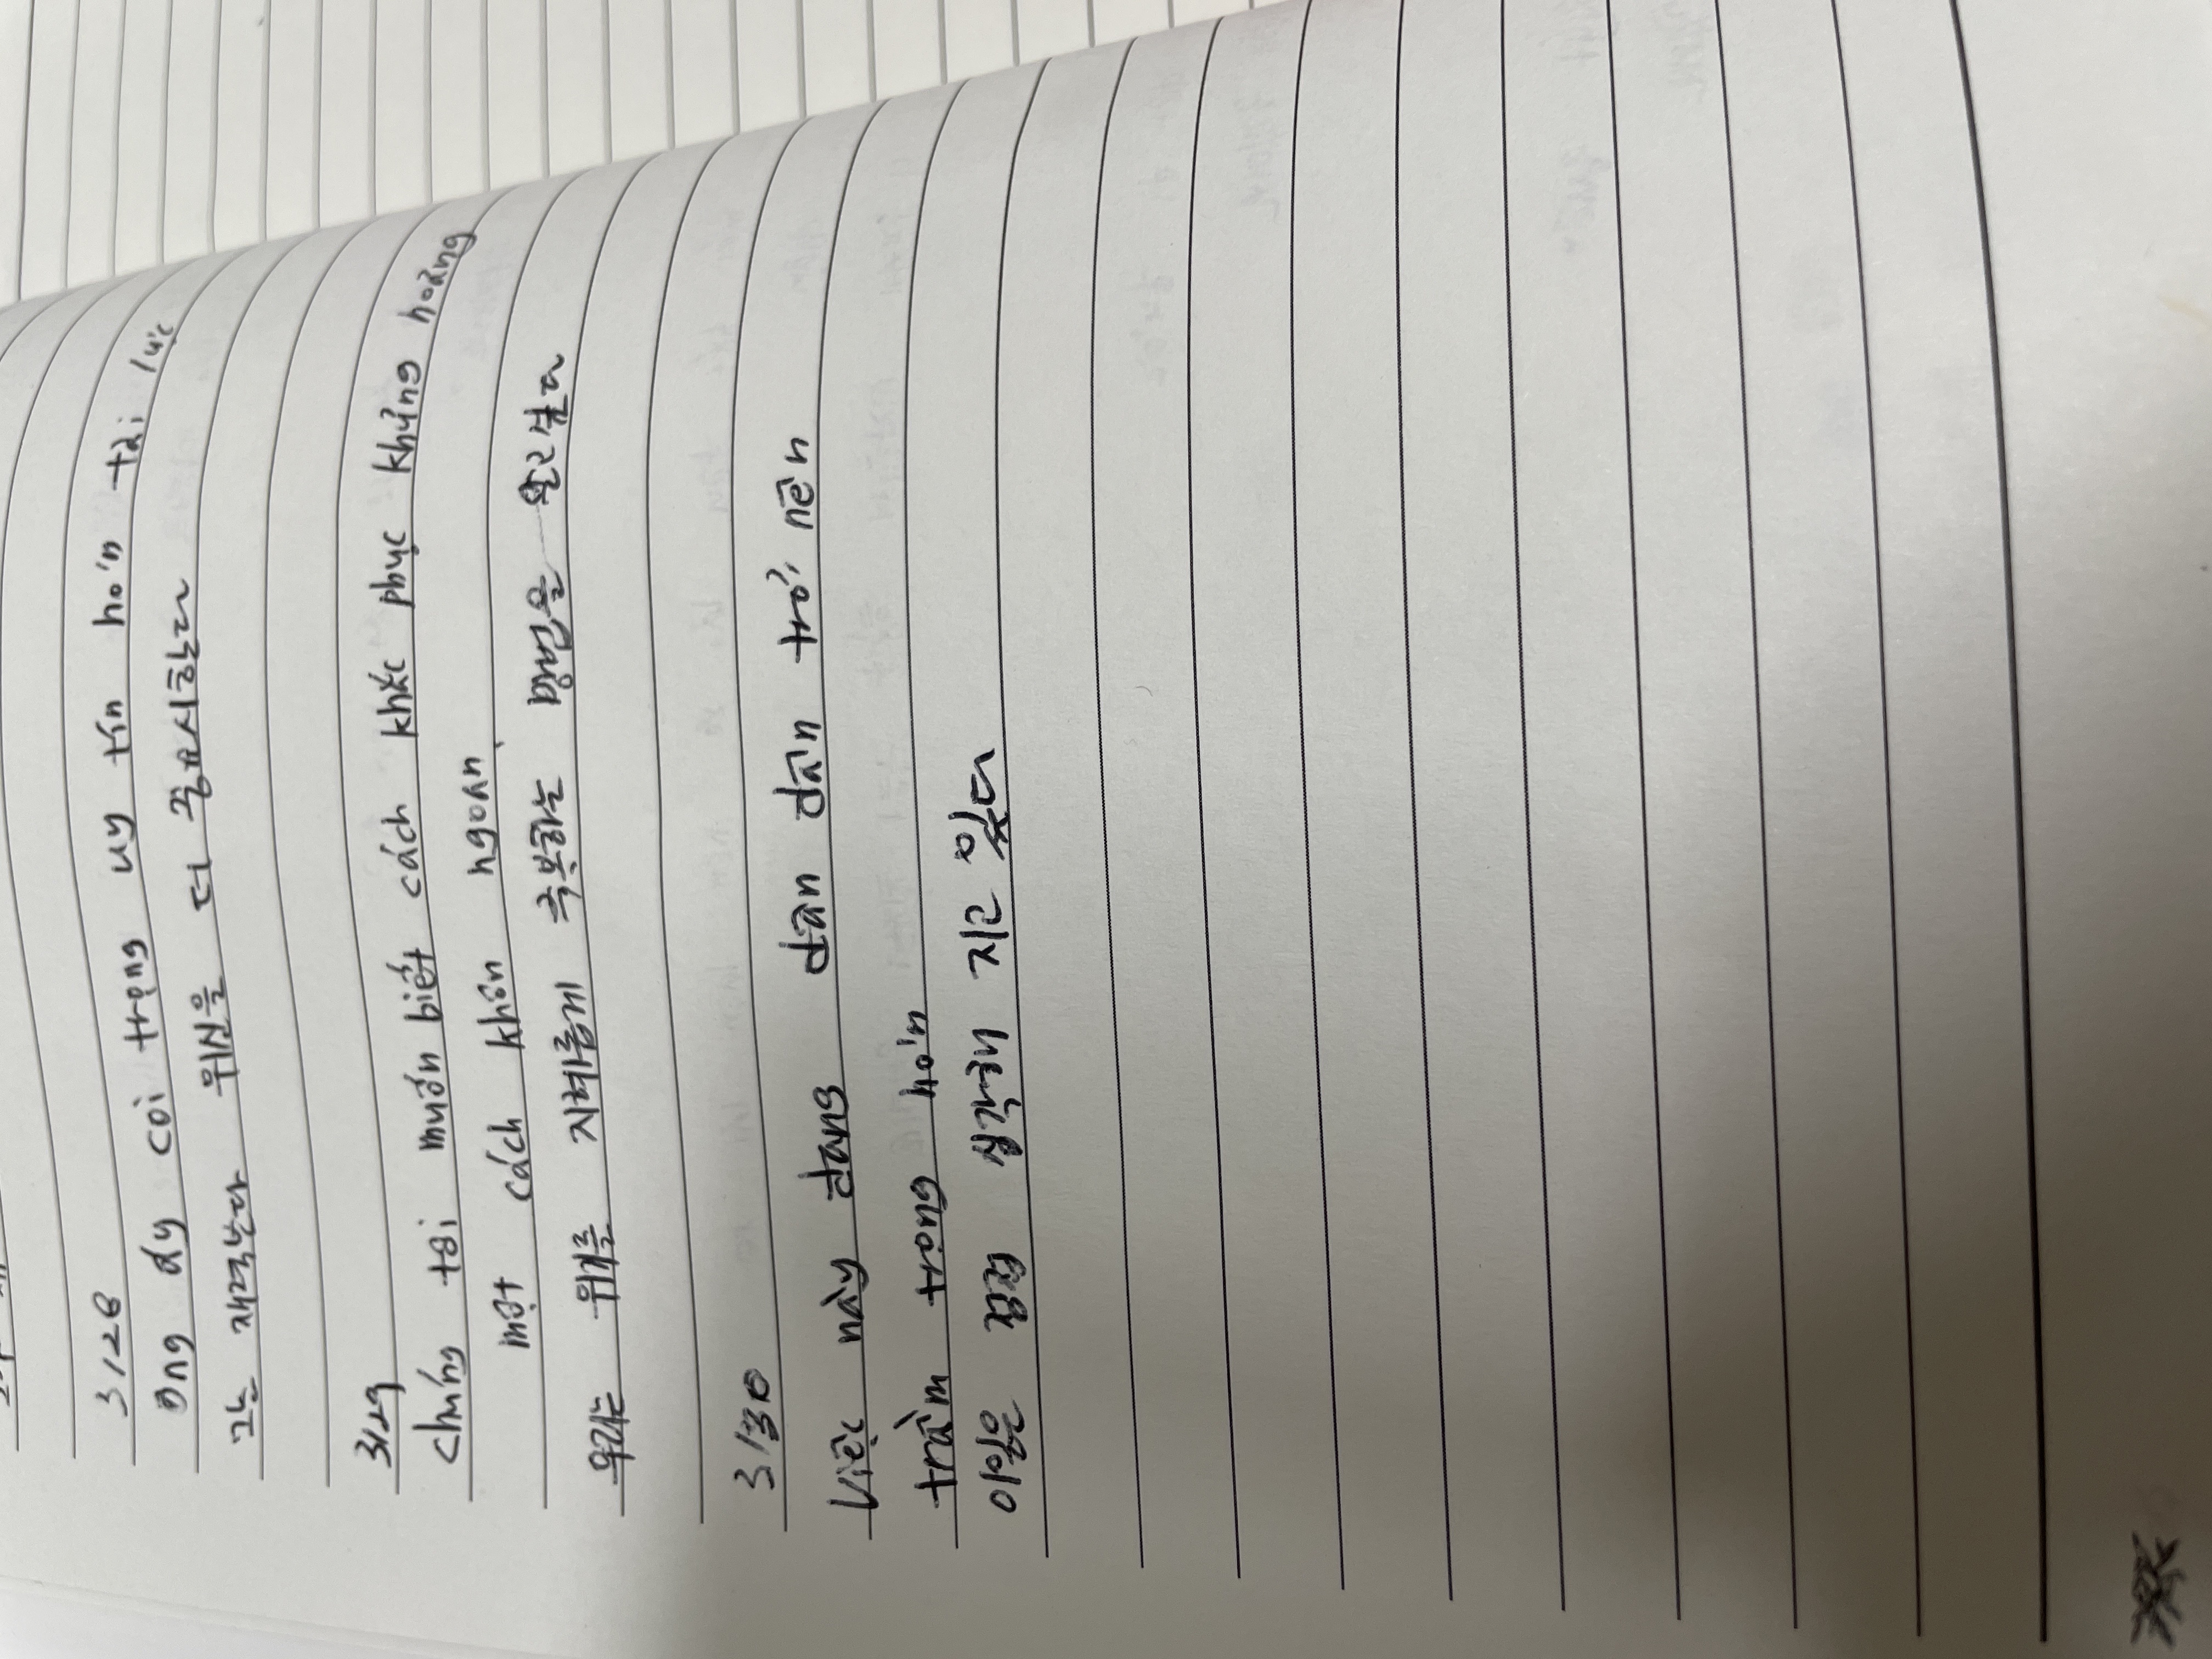 3/28
Ông ấy coi trọng uy tín hơn tài lực
그는 재력보다 위신을 더 중요시한다
3/29
chúng tôi muốn biết cách khắc phục khủng hoảng
một cách khôn ngoan
우리는 위기를 지혜롭게 극복하는 방법을 알고싶다
3/30
Việc này đang dần dần trở nên
trầm trọng hơn
이일은 점점 심각해 지고 있다